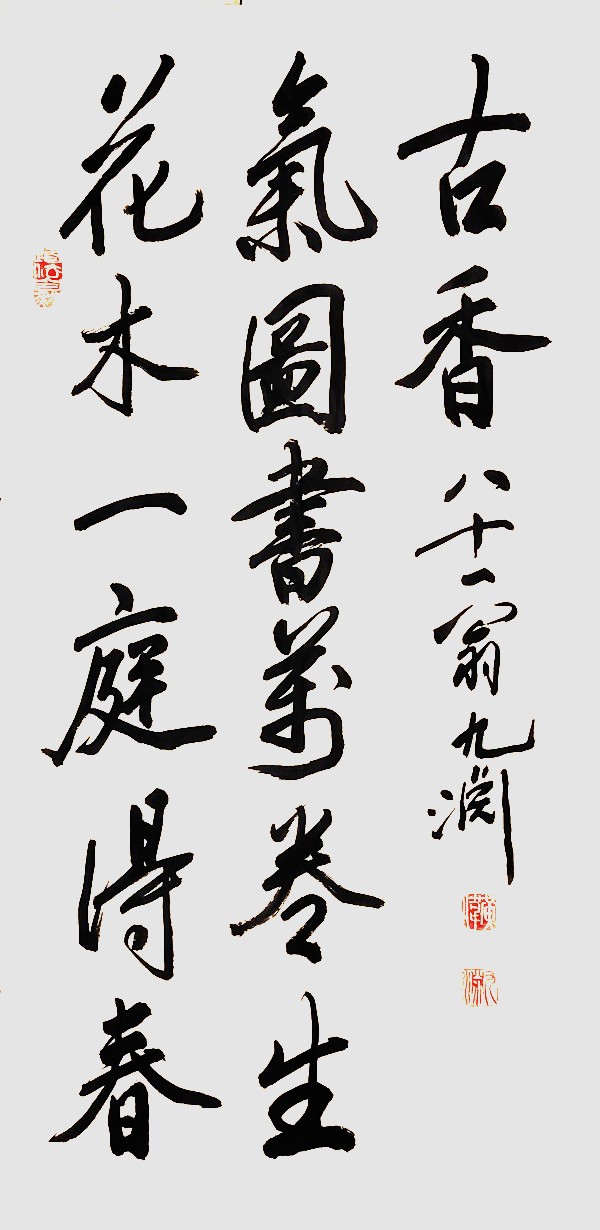 花木一庭得春
氣圖書萬卷生
古香
八十一翁九淵